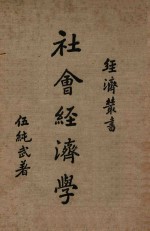 經濟叢書
社會經濟學
伍純武著